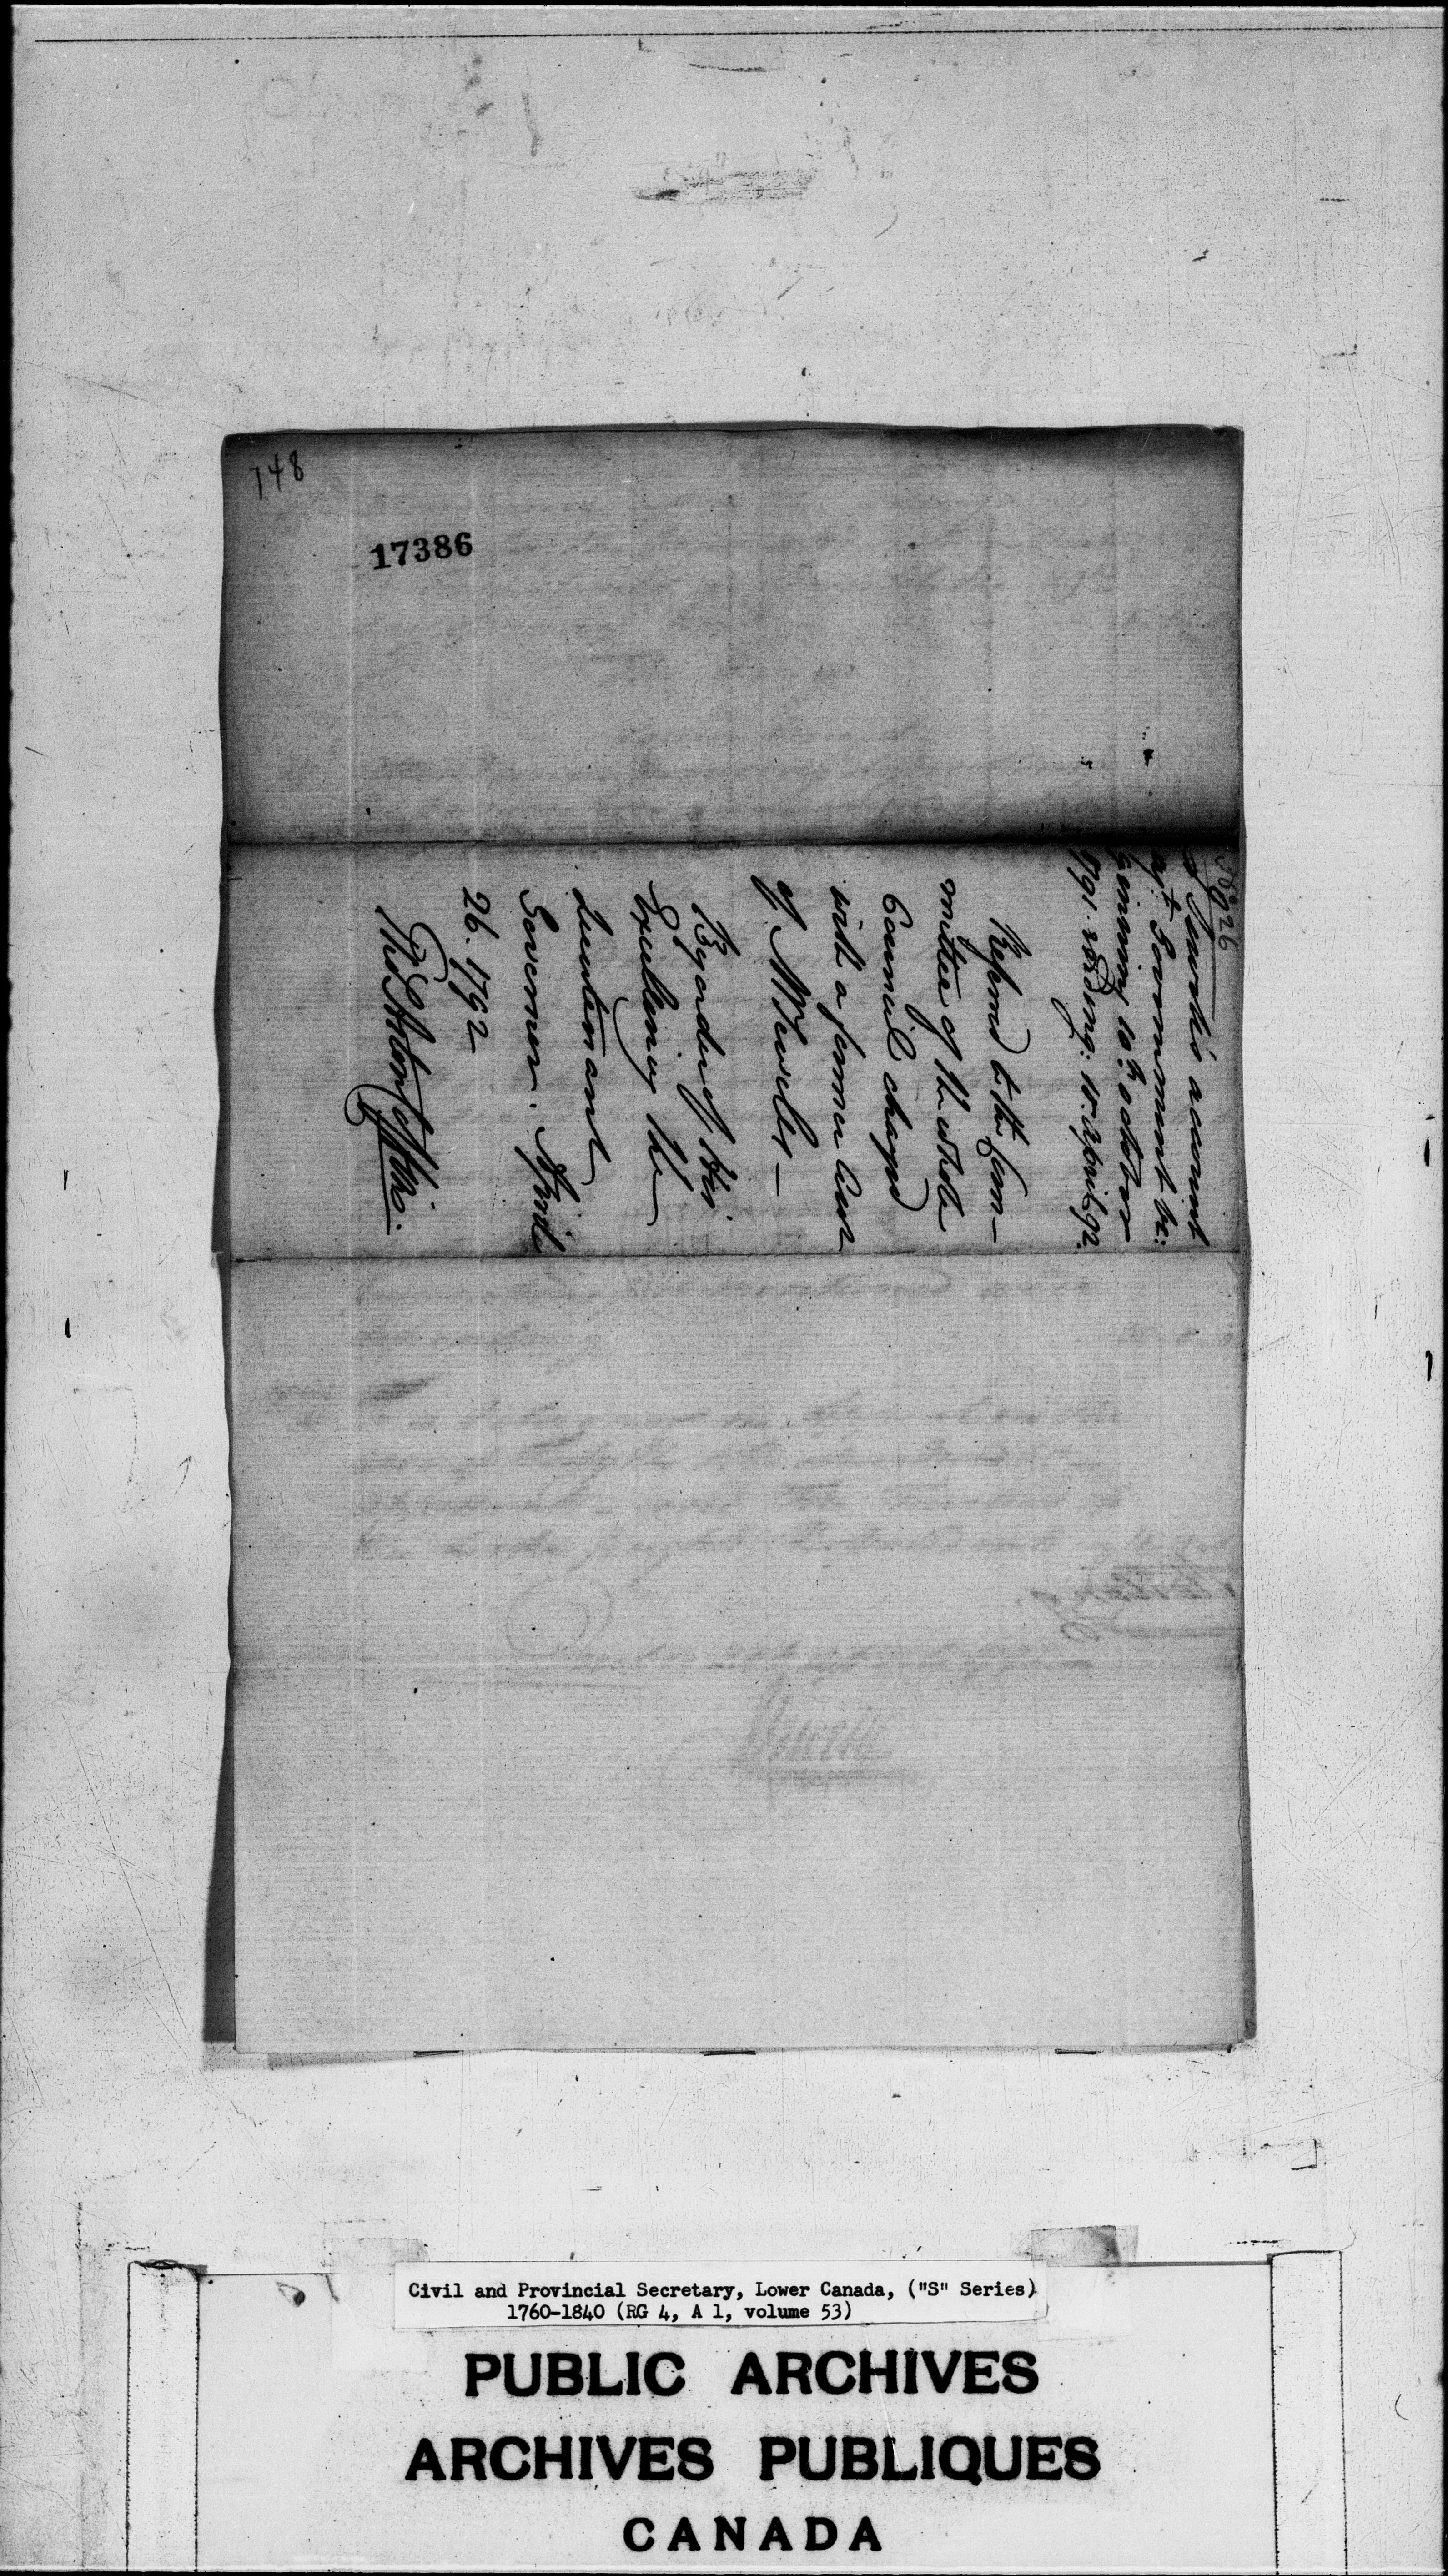 748
17386
No. 26
J Sewell's account
agt. Government be:
ginning 10th October
1791. ending: 10. April 92.
Referred to the Com-
mittee of the whole
Council charged
with a former Acct
of Mr Sewells —
By order of His
Excellency the
Lieutenant
Governor. April
26. 1792
Civil and Provincial Secretary, Lower Canada, ("S" Series)
1760-1840 (RG 4, A 1, volume 53)
PUBLIC ARCHIVES
ARCHIVES PUBLIQUES
CANADA